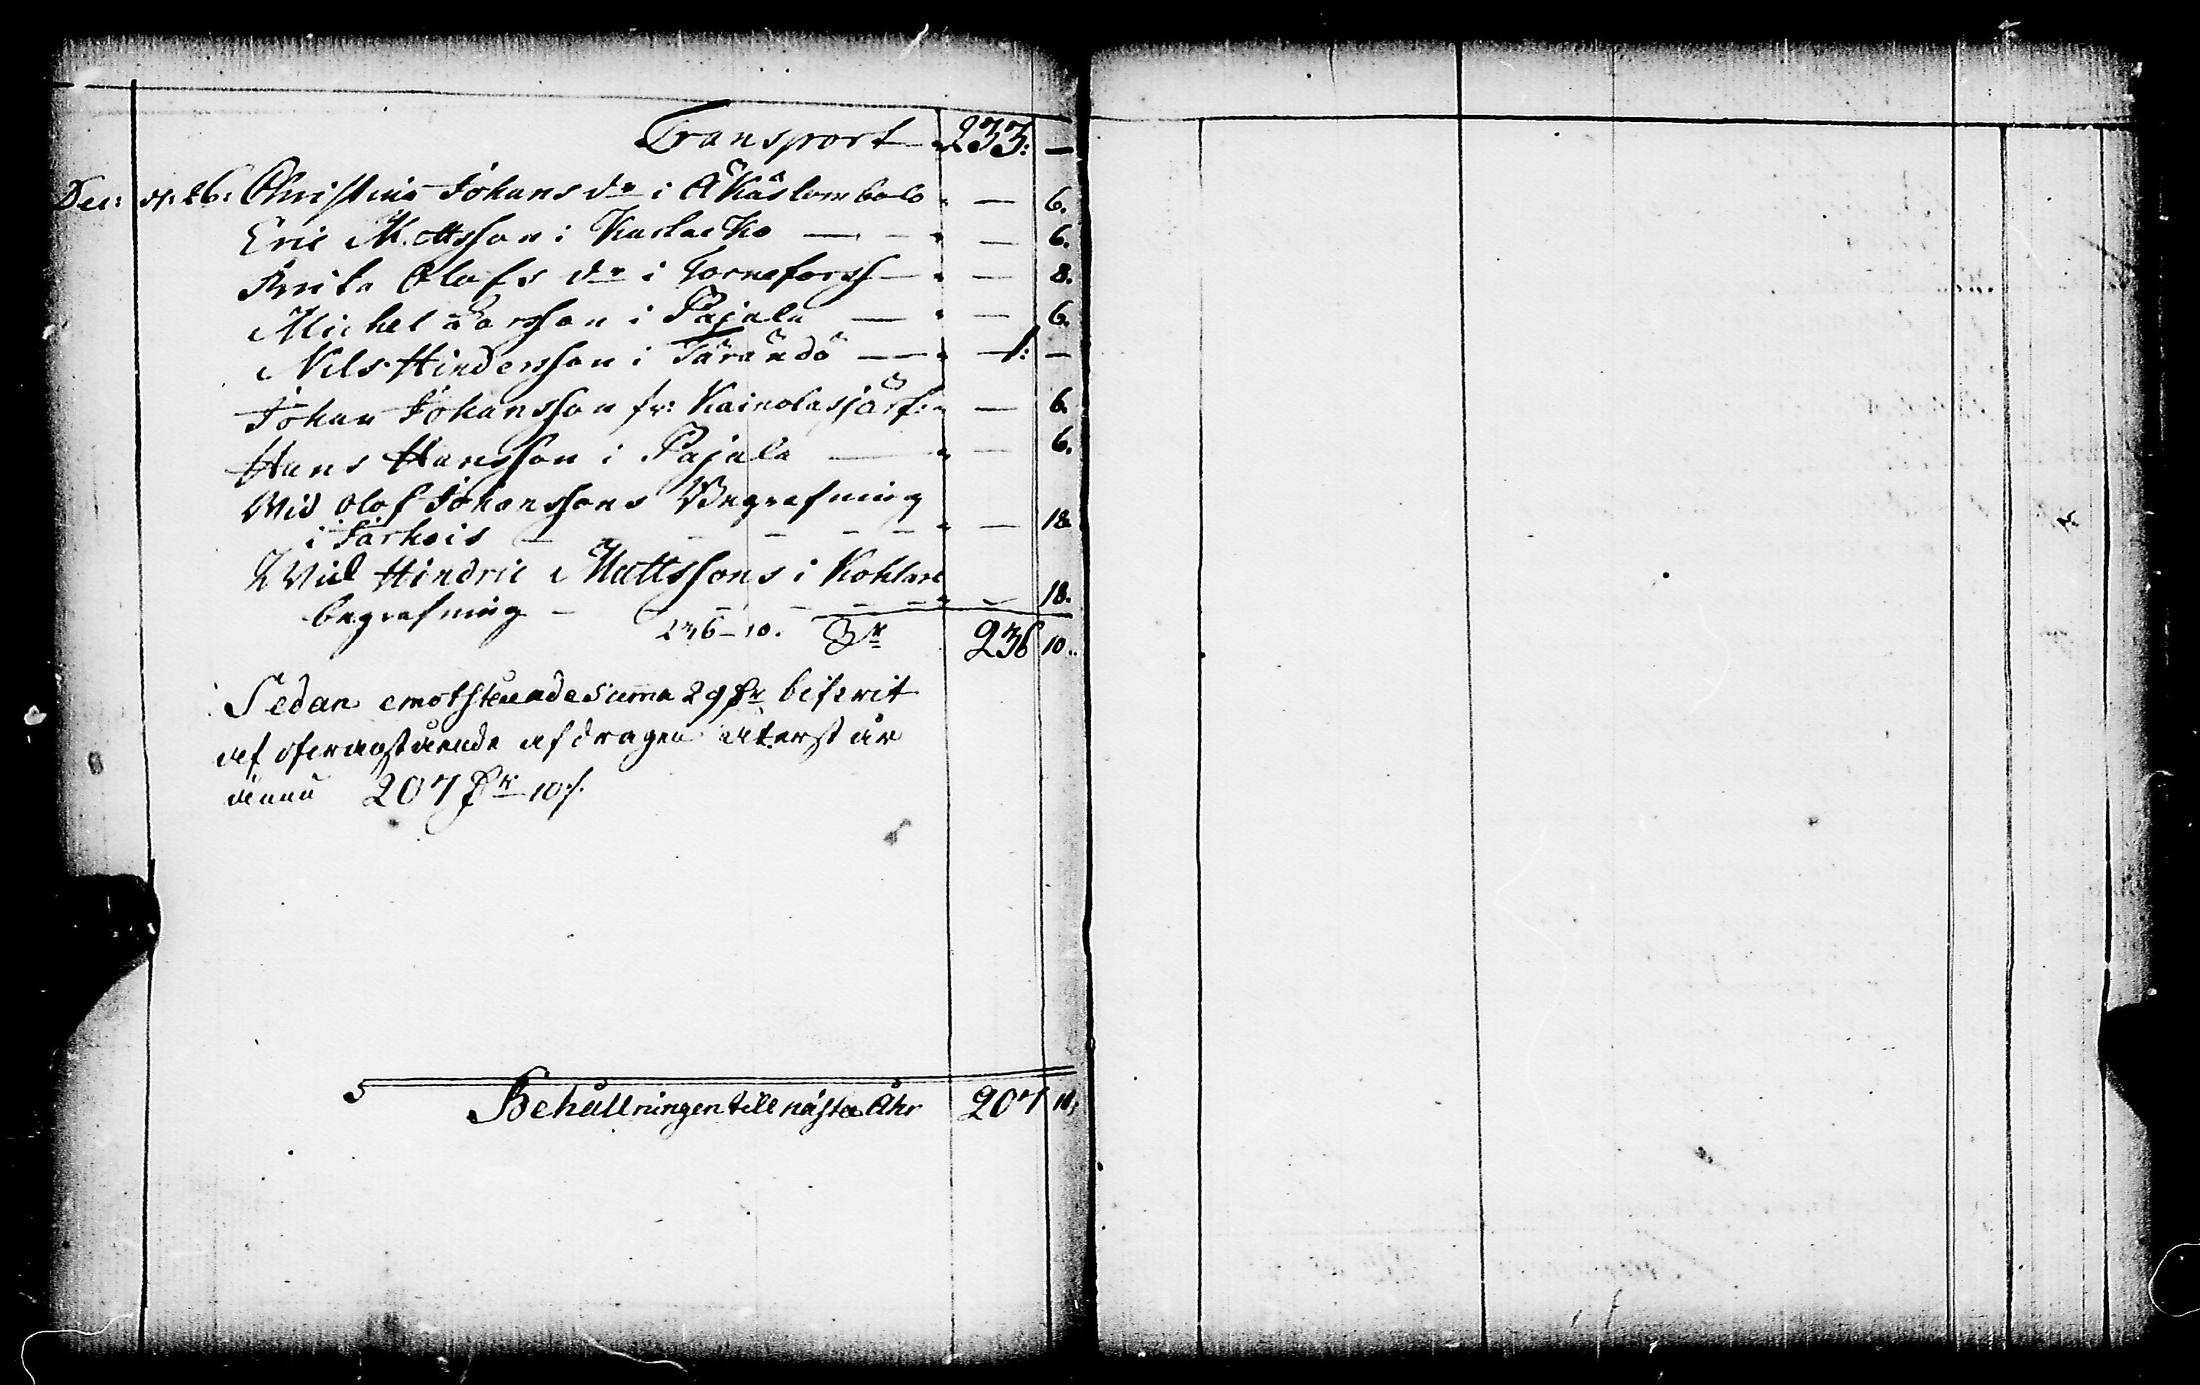 Transport 233: —
Dec: d: 26: Christina Johans dr i Äkäslombolo — 6.
Eric Mattsson i Kaslacko — — 6.
Brita Olofs dr i Torneforss — — 8.
Michel Larsson i Pajala — — 6.
Nils Hindersson i Tärändö — 1: —
Johan Johansson fr: Kainolasjärf: — 6.
Hans Hansson i Pajala — — 6.
Wid Olof Johanssons Begrafning
i Jarhois — — — — — 18.
Wid Hindric Mattssons i Kohlare
begrafning — — — — — 18.
236-10. Rr 236 10.
Sedan emotstående Suma 29 Rr blifvit
af ofvanstående afdragen återstår
ännu 207 Rr 10 s.
Behållningen till nästa Åhr 207 10,